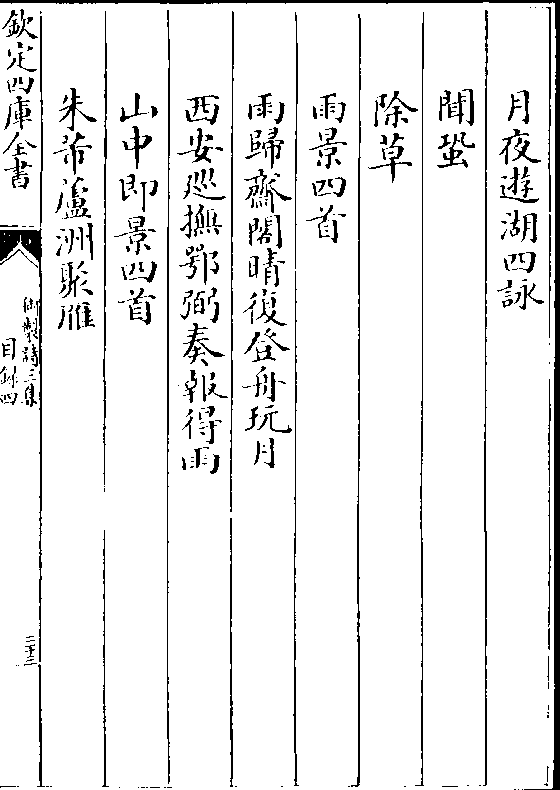 月夜遊湖四詠
聞蛩
除草
雨景四首
雨歸齋閣晴復登舟玩月
西安巡撫鄂弼奏報得雨
山中即景四首
朱芾蘆洲聚雁
欽定四庫全書
御製詩三集
目録四